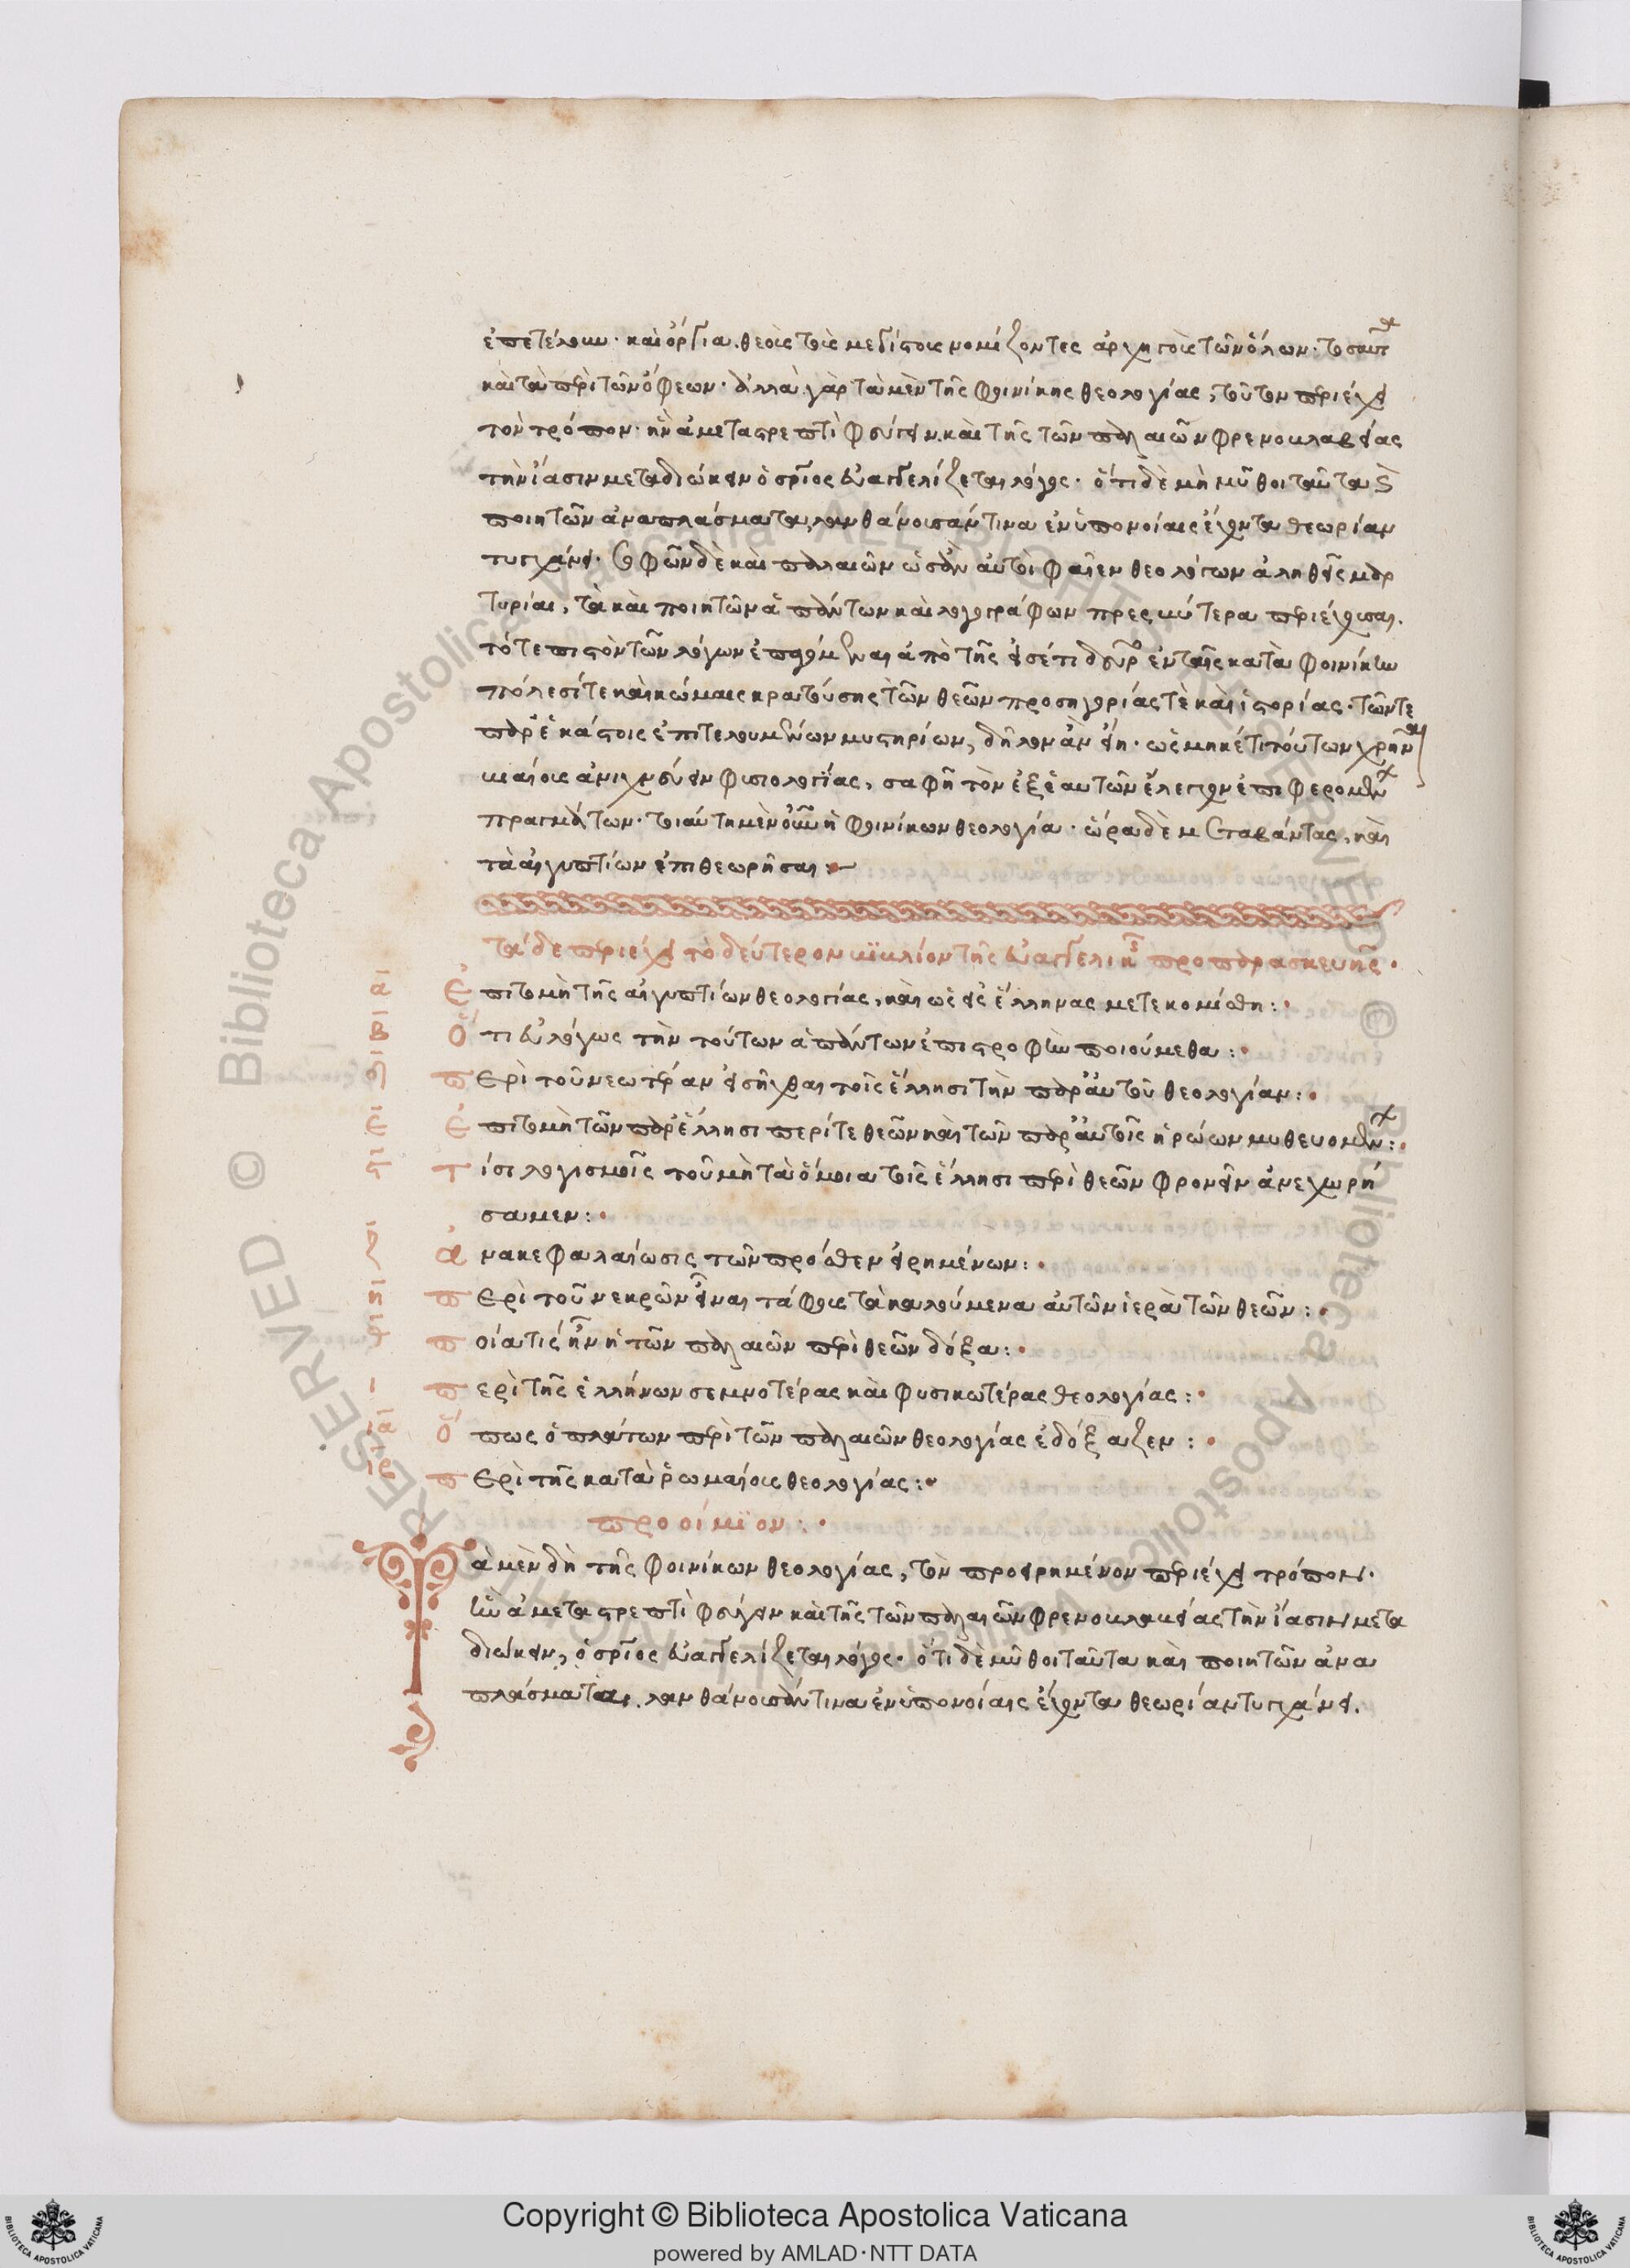 ἐπετέλουν· καὶ ὄργια. θεοὺς τοὺς μεγίστους νομίζοντες ἀρχηγοὺς τῶν ὅλων· τοσαῦτα
καὶ τὰ περὶ τῶν ὄφεων· ἀλλὰ γὰρ τὰ μὲν τῆς φοινίκης θεολογίας, τοῦτον περιέχει
τὸν τρόπον· ἣν ἀμεταστρεπτὶ φεύγειν. καὶ τῆς τῶν παλαιῶν φρενοβλαβείας
τὴν ἴασιν μεταδιώκειν ὁ σωτήριος εὐαγγελίζεται λόγος· ὅτι δὲ μὴ μῦθοι ταῦτα καὶ
ποιητῶν ἀναπλάσματα, λανθάνουσάν τινα ἐν ὑπονοίαις ἔχοντα θεωρίαν
τυγχάνει· σοφῶν δὲ καὶ παλαιῶν ὡς ἂν αὐτοὶ φαῖεν θεολόγων ἀληθεῖς μαρ
τυρίαι, τὰ καὶ ποιητῶν ἁπάντων καὶ λογογράφων πρεσβύτερα περιέχουσαι.
τό τε πιστὸν τῶν λόγων ἐπαγόμεναι ἀπὸ τῆς εἰσέτι δεῦρο ἐν ταῖς κατὰ φοινίκην
πόλεσί τε καὶ κώμαις κρατούσης τῶν θεῶν προσηγορίας τὲ καὶ ἱστορίας· τῶν τε
παρ' ἑκάστοις ἐπιτελουμένων μυστηρίων, δῆλον ἂν εἴη· ὡς μηκέτι τούτων χρῆναι
βιαίους ἀνιχνεύειν φυσιολογίας, σαφῆ τὸν ἐξ ἑαυτῶν ἔλεγχον ἐπιφερομένων
πραγμάτων· τοιαύτη μὲν οὖν ἡ φοινίκων θεολογία· ὥρα δὲ μεταβάντας, καὶ
τὰ αἰγυπτίων ἐπιθεωρῆσαι:
τάδε περιέχει τὸ δεύτερον βϊβλίον τῆς εὐαγγελικῆς προπαρασκευῆς·
Ἐπιτομὴ τῆς αἰγυπτίων θεολογίας, καὶ ὡς εἰς ἕλληνας μετεκομίσθη:
Ὅτι εὐλόγως τὴν τούτων ἁπάντων ἐπιστροφὴν ποιούμεθα:
Περὶ τοῦ νεωτέραν εἰσῆχθαι τοῖς ἕλλησι τὴν παρ' αὐτοῦ θεολογίαν:
Ἐπιτομὴ τῶν παρ' ἕλλησι περί τε θεῶν καὶ τῶν παρ' αὐτοῖς ἡρώων μυθευομένων:
Τίσι λογισμοῖς τοῦ μὴ τὰ ὅμοια τοῖς ἕλλησι περὶ θεῶν φρονεῖν ἀνεχωρή
σαμεν:
Ἀνακεφαλαίωσις τῶν πρόσθεν εἰρημένων:
Περὶ τοῦ νεκρῶν εἶναι τάφους τὰ καλούμενα αὐτῶν ἱερὰ τῶν θεῶν:
Ποία τις ἦν ἡ τῶν παλαιῶν περὶ θεῶν δόξα:
Περὶ τῆς ἑλλήνων σεμνοτέρας καὶ φυσικωτέρας θεολογίας:
Ὅπως ὁ πλάτων περὶ τῶν παλαιῶν θεολογίας ἐδόξαζεν:
Περὶ τῆς κατὰ ῥωμαίους θεολογίας:
προοίμϊον:
Τὰ μὲν δὴ τῆς φοινίκων θεολογίας, τὸν προειρημένον περιέχει τρόπον.
ἣν ἀμεταστρεπτὶ φεύγειν καὶ τῆς τῶν παλαιῶν φρενοβλαβείας τὴν ἴασιν μετα
διώκειν, ὁ σωτήριος εὐαγγελίζεται λόγος· ὅτι δὲ μῦθοι ταῦτα καὶ ποιητῶν ἀνα
πλάσματα, λανθάνουσάν τινα ἐν ὑπονοίαις ἔχοντα θεωρίαν τυγχάνει.
Copyright © Biblioteca Apostolica Vaticana
powered by AMLAD·NTT DATA